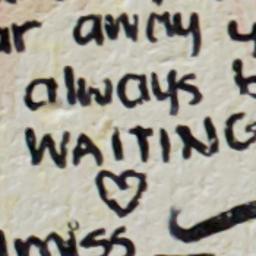 away
always
WAITING
miss